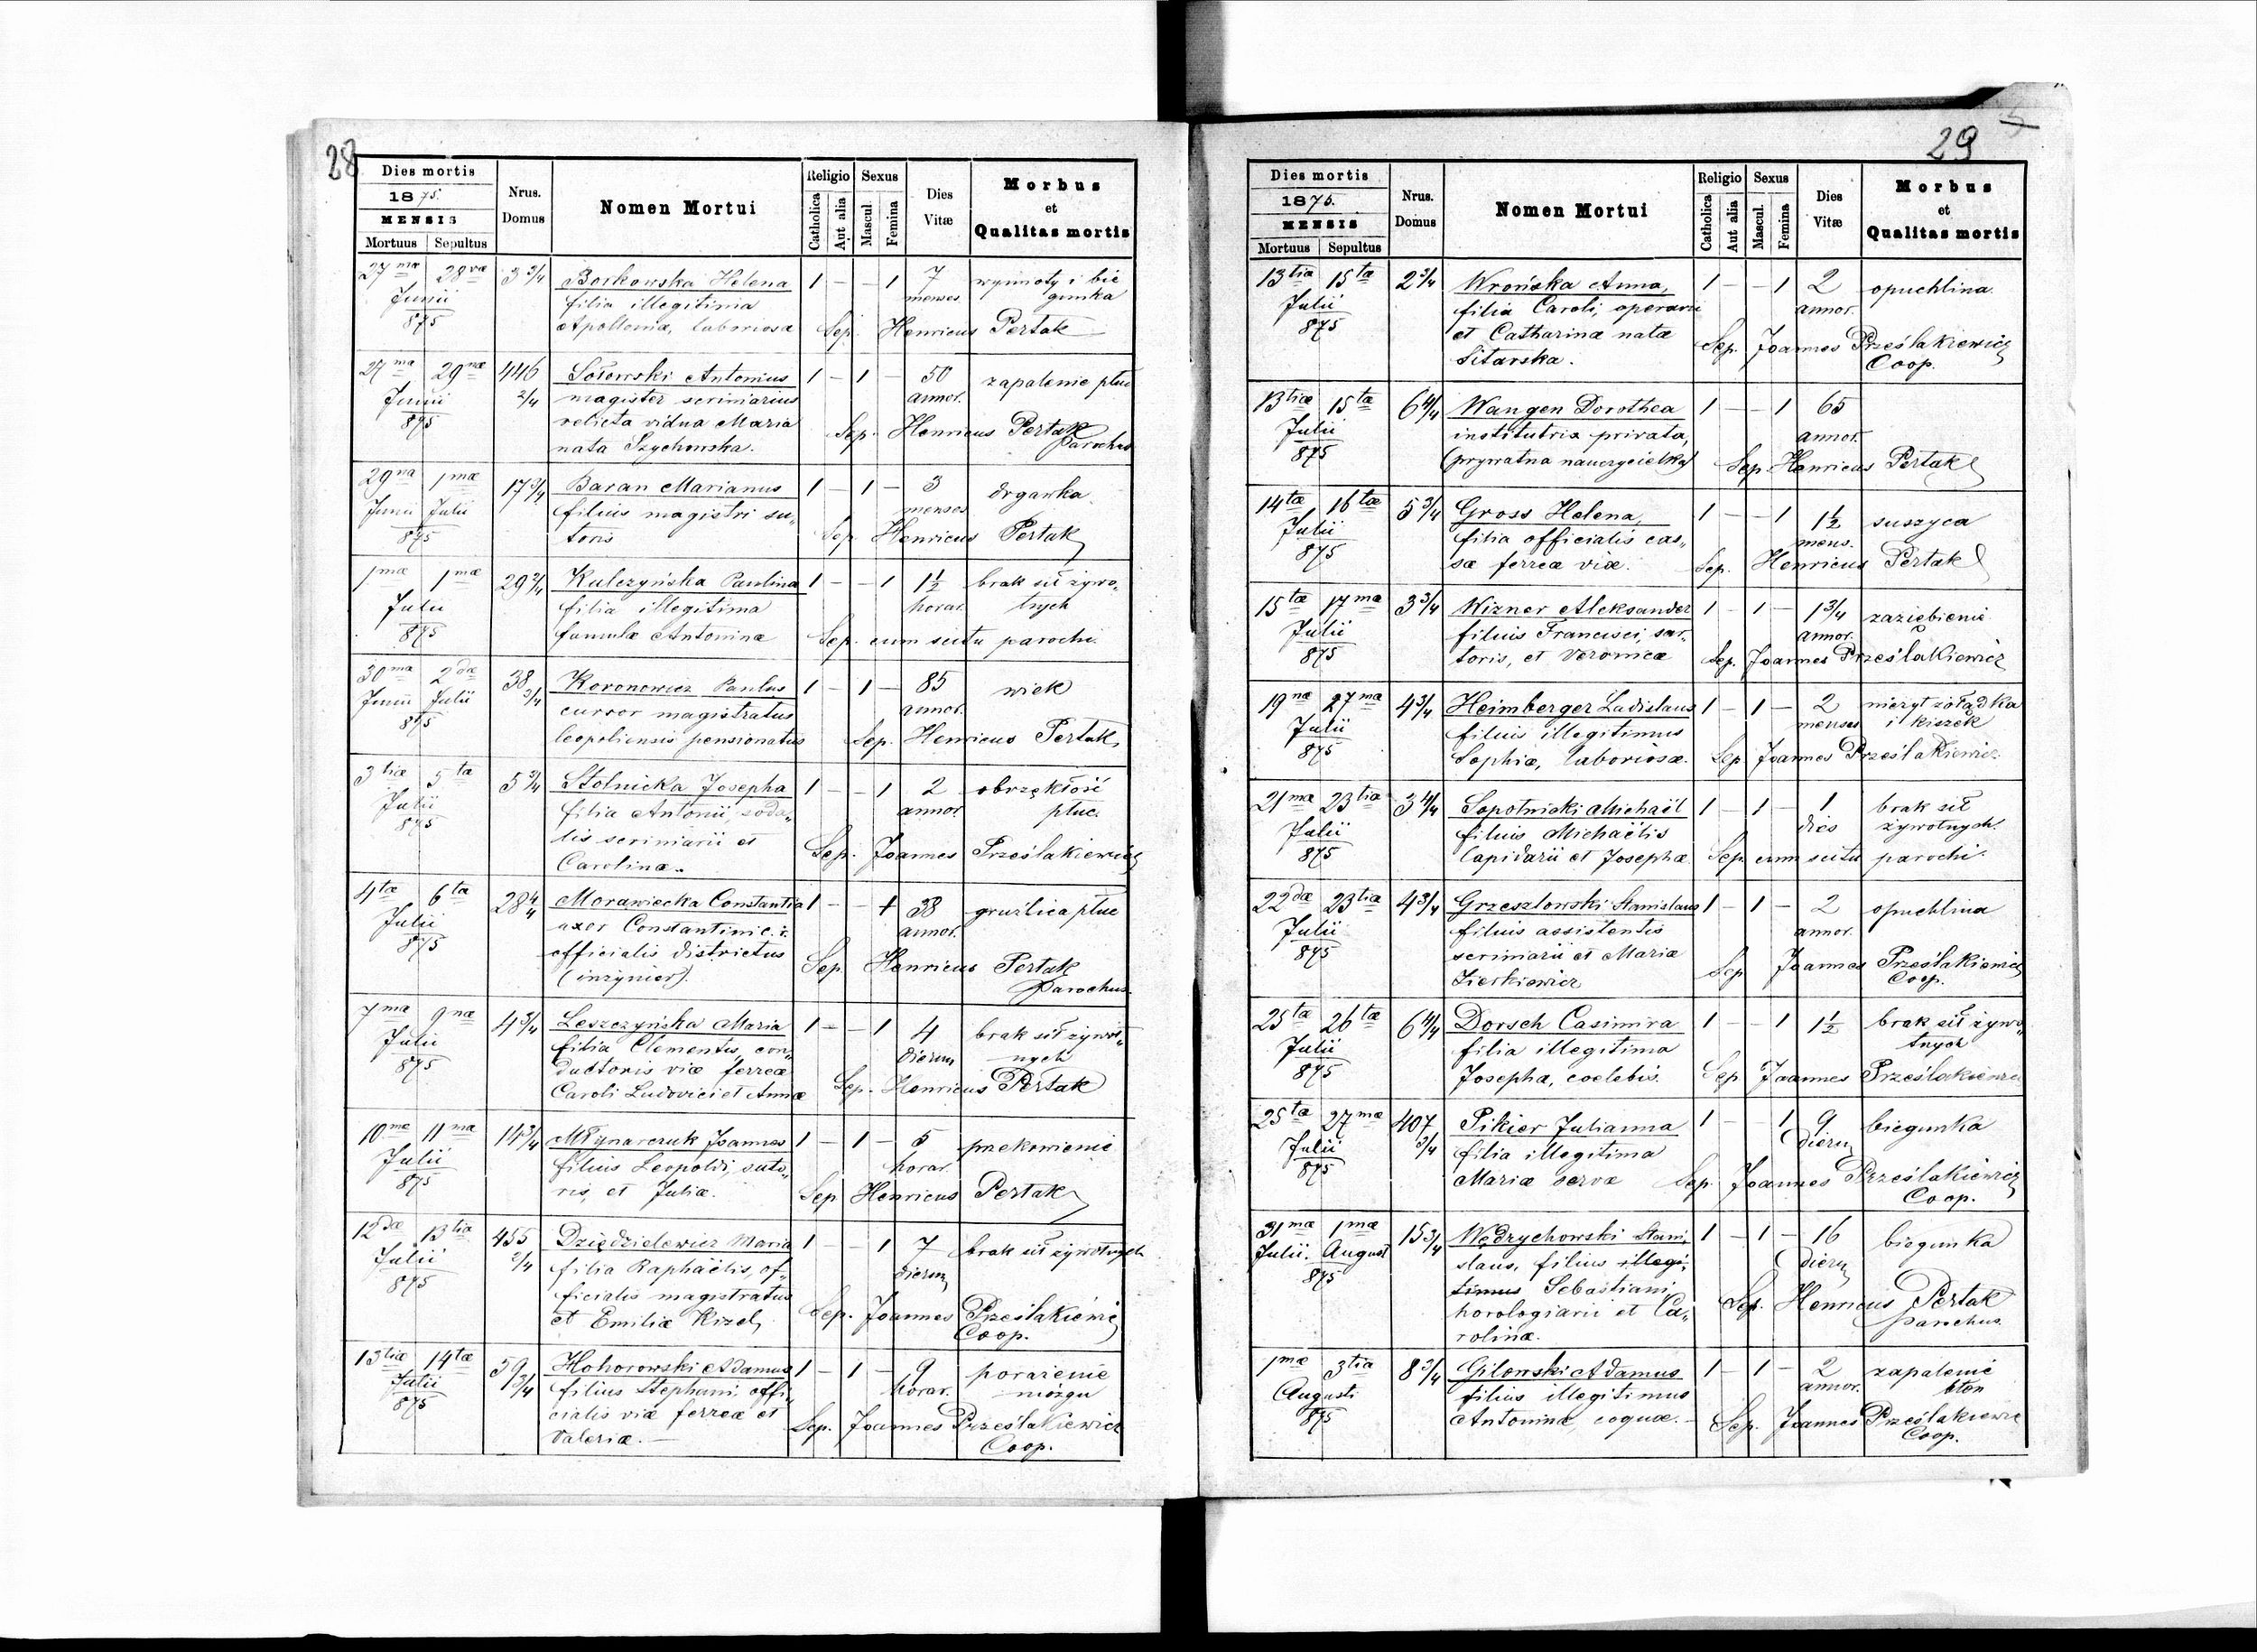 28
Dies mortis
1875.
MENSIS
Mortuus Sepultus
Nrus. Domus
Nomen Mortui
Religio
Catholica
Aut alia
Sexus
Mascul.
Femina
Dies Vitæ
Morbus
et
Qualitas mortis
27ma 28væ 3 3/4 Borkowska Helena 1 — — 1 7 wymioty i bie
Junii filia illegitima menses gunka
875 Apolloniæ, laboriosa Sep. Henricus Pertak
27ma 29næ 446 Sołowski Antonius 1 — 1 — 50 zapalenie płuc
Junii 2/4 magister scriniarius annor.
875 relicta vidua Maria Sep. Henricus Pertak
nata Szychowska. Parochus
29na 1mæ 17 3/4 Baran Marianus 1 — 1 — 3 drgawka
Junii Julii filius magistri su„ menses
875 toris Sep. Henricus Pertak
1mæ 1mæ 29 2/4 Kulczyńska Paulina 1 — — 1 1½ brak sił żywo„
Julii filia illegitima horar. tnych
875 famulæ Antoninæ Sep. cum scitu parochi.
30ma 2dæ 38 Koronowicz Paulus 1 — 1 — 85 wiek
Junii Julii 3/4 cursor magistratus annor.
875 leopoliensis pensionatus Sep. Henricus Pertak
3tiæ 5ta 5 3/4 Stolnicka Josepha 1 — — 1 2 obrzękłość
Julii filia Antonii soda„ annor. płuc.
875 lis scriniarii et Sep. Joannes Prześlakiewicz
Carolinæ.
4tæ 6ta 28 4/4 Morawiecka Constantia 1 — — 1 38 gruźlica płuc
Julii uxor Constantini c. r. annor.
875 officialis districtus Sep. Henricus Pertak
(inżynier). Parochus.
7ma 9næ 4 3/4 Leszczyńska Maria 1 — — 1 4 brak sił żywot„
Julii filia Clementis, con„ dierum nych
875 ductoris viæ ferreæ Sep. Henricus Pertak
Caroli Ludovici et Annæ
10mæ 11mæ 14 3/4 Młynarczuk Joannes 1 — 1 — 5 przekrwienie
Julii filius Leopoldi, suto„ horar.
875 ris, et Juliæ. Sep. Henricus Pertak
12dæ 13tiæ 455 Dziędzielewicz Maria 1 — — 1 7 brak sił żywotnych
Julii 2/4 filia Raphaëlis, of„ dierum
875 ficialis magistratus Sep. Joannes Prześlakiewicz
et Emiliæ Kizel, Coop.
13tiæ 14tæ 59 Hohorowski Adamus 1 — 1 — 9 porażenie
Julii 3/4 filius Stephani offi„ horar. mózgu
875 cialis viæ ferreæ et Sep. Joannes Prześlakiewicz
Valeriæ. — Coop.
29
Dies mortis
1875.
MENSIS
Mortuus Sepultus
Nrus. Domus
Nomen Mortui
Religio
Catholica
Aut alia
Sexus
Mascul.
Femina
Dies Vitæ
Morbus
et
Qualitas mortis
13tia 15ta 2 3/4 Wrońska Anna, 1 — — 1 2 opuchlina
Julii filia Caroli, operarii annor.
875 et Catharinæ natæ Sep. Joannes Prześlakiewicz
Sitarska. Coop.
13tiæ 15tæ 6 4/4 Wangen Dorothea 1 — — 1 65
Julii institutrix privata, annor.
875 (prywatna nauczycielka) Sep. Henricus Pertak
14tæ 16tæ 5 3/4 Gross Helena, 1 — — 1 1½ suszyca
Julii filia officialis cas„ mens.
875 sæ ferreæ viæ. Sep. Henricus Pertak
15tæ 17ma 3 3/4 Wizner Aleksander 1 — 1 — 1 3/4 zaziębienie
Julii filius Francisci, sar„ annor.
875 toris, et Veronicæ Sep. Joannes Prześlakiewicz
19næ 27mæ 4 3/4 Heimberger Ladislaus 1 — 1 — 2 nieżyt żołądka
Julii filius illegitimus menses i kiszek
875 Sophiæ, laboriosæ. Sep. Joannes Prześlakiewicz.
21mæ 23tiæ 3 4/4 Sopotnicki Michaël 1 — 1 — 1 brak sił
Julii filius Michaëlis dies żywotnych.
875 lapidarii et Josephæ Sep. cum scitu parochi.
22dæ 23tiæ 4 3/4 Grzeszlowski Stanislaus 1 — 1 — 2 opuchlina
Julii filius assistentis annor.
875 scriniarii et Mariæ Sep. Joannes Prześlakiewicz
Zierkiewicz Coop.
25tæ 26tæ 6 4/4 Dorsch Casimira 1 — — 1 1½ brak sił żywo„
Julii filia illegitima tnych
875 Josepha, coelebis. Sep. Joannes Prześlakiewicz
25tæ 27mæ 407 Pikier Julianna 1 — — 1 9 biegunka
Julii 3/4 filia illegitima dierum
875 Mariæ servæ Sep. Joannes Prześlakiewicz
Coop.
31mæ 1mæ 15 3/4 Wędrychowski Stani„ 1 — 1 — 16 biegunka
Julii. August slaus, filius illegi„ dierum
875 timus Sebastiani, Sep. Henricus Pertak
horologiarii et Ca„ parochus
rolinæ.
1mæ 3tia 8 3/4 Gilowski Adamus 1 — 1 — 2 zapalenie
Augusti filius illegitimus annor. błon
875 Antoninæ, coquæ. — Sep. Joannes Prześlakiewicz
Coop.